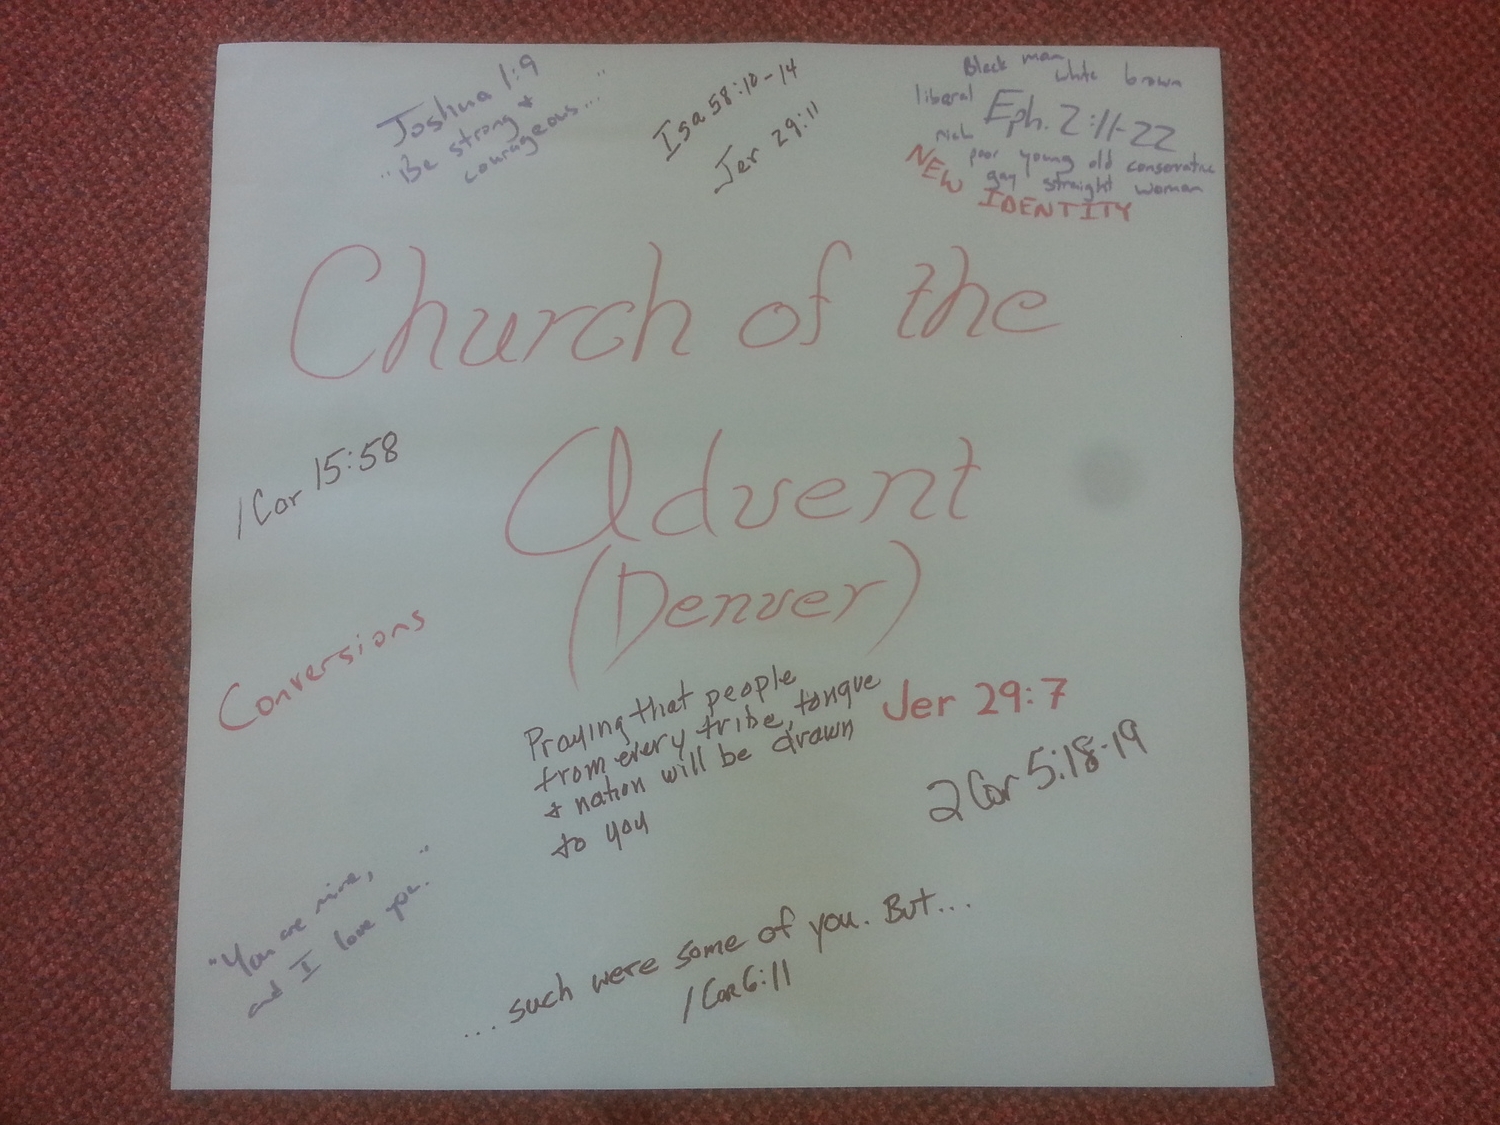 Joshua 1:9
"Be strong &
courageous..."
Isa 58:10-14
Jer 29:11
Black man white brown
liberal Eph. 2:11-22
rich poor young old conservative
gay straight woman
NEW IDENTITY
Church of the
Advent
(Denver)
1 Cor 15:58
Conversions
Praying that people
from every tribe, tongue
& nation will be drawn
to you
Jer 29:7
2 Cor 5:18-19
"You are mine,
and I love you."
...such were some of you. But...
1 Cor 6:11